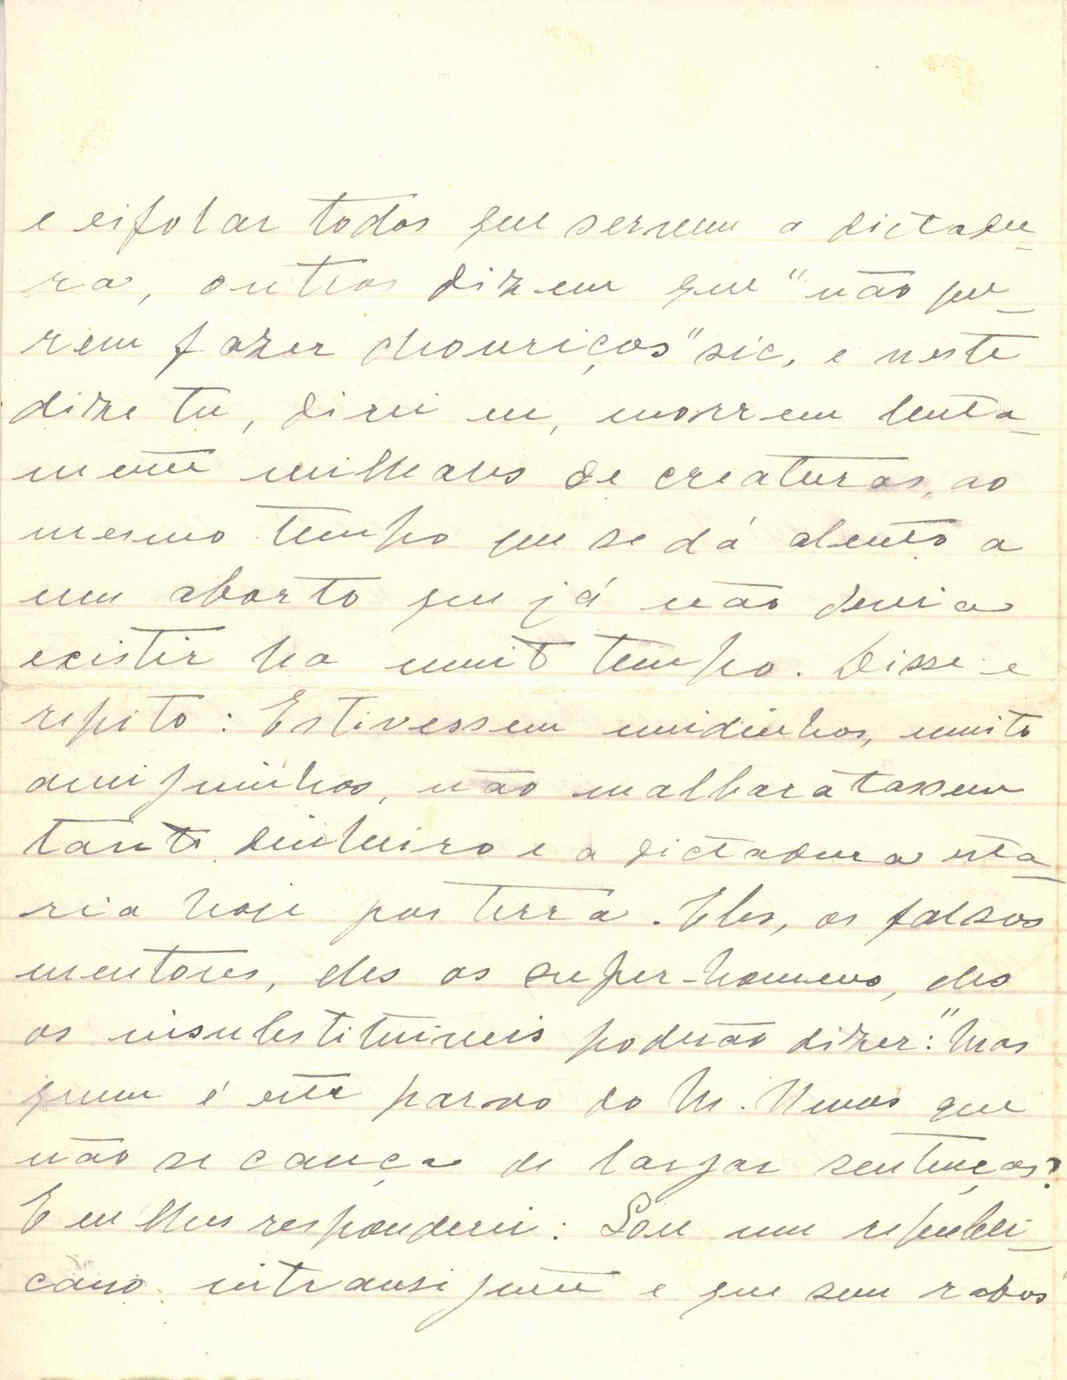 e eifolar todos que servem a dictadu-
ra, outros dizem que "não que-
rem fazer chouriços" sic, e neste
dize tu, direi eu, morrem lenta-
mente milhares de creaturas, ao
mesmo tempo que se dá alento a
um aborto que já não devia
existir ha muito tempo. Disse e
repito: Estivessem unidinhos, muito
amiguinhos, não malbaratassem
tanto dinheiro e a dictadura esta-
ria hoje por terra. Eles, os falsos
mentores, eles os super-homens, eles
os insubstituiveis poderão dizer: "Mas
quem é este parvo do M. Neves que
não se cança de largar sentenças?
E eu lhes responderei: Sou um republi-
cano intransigente e que sem rabos